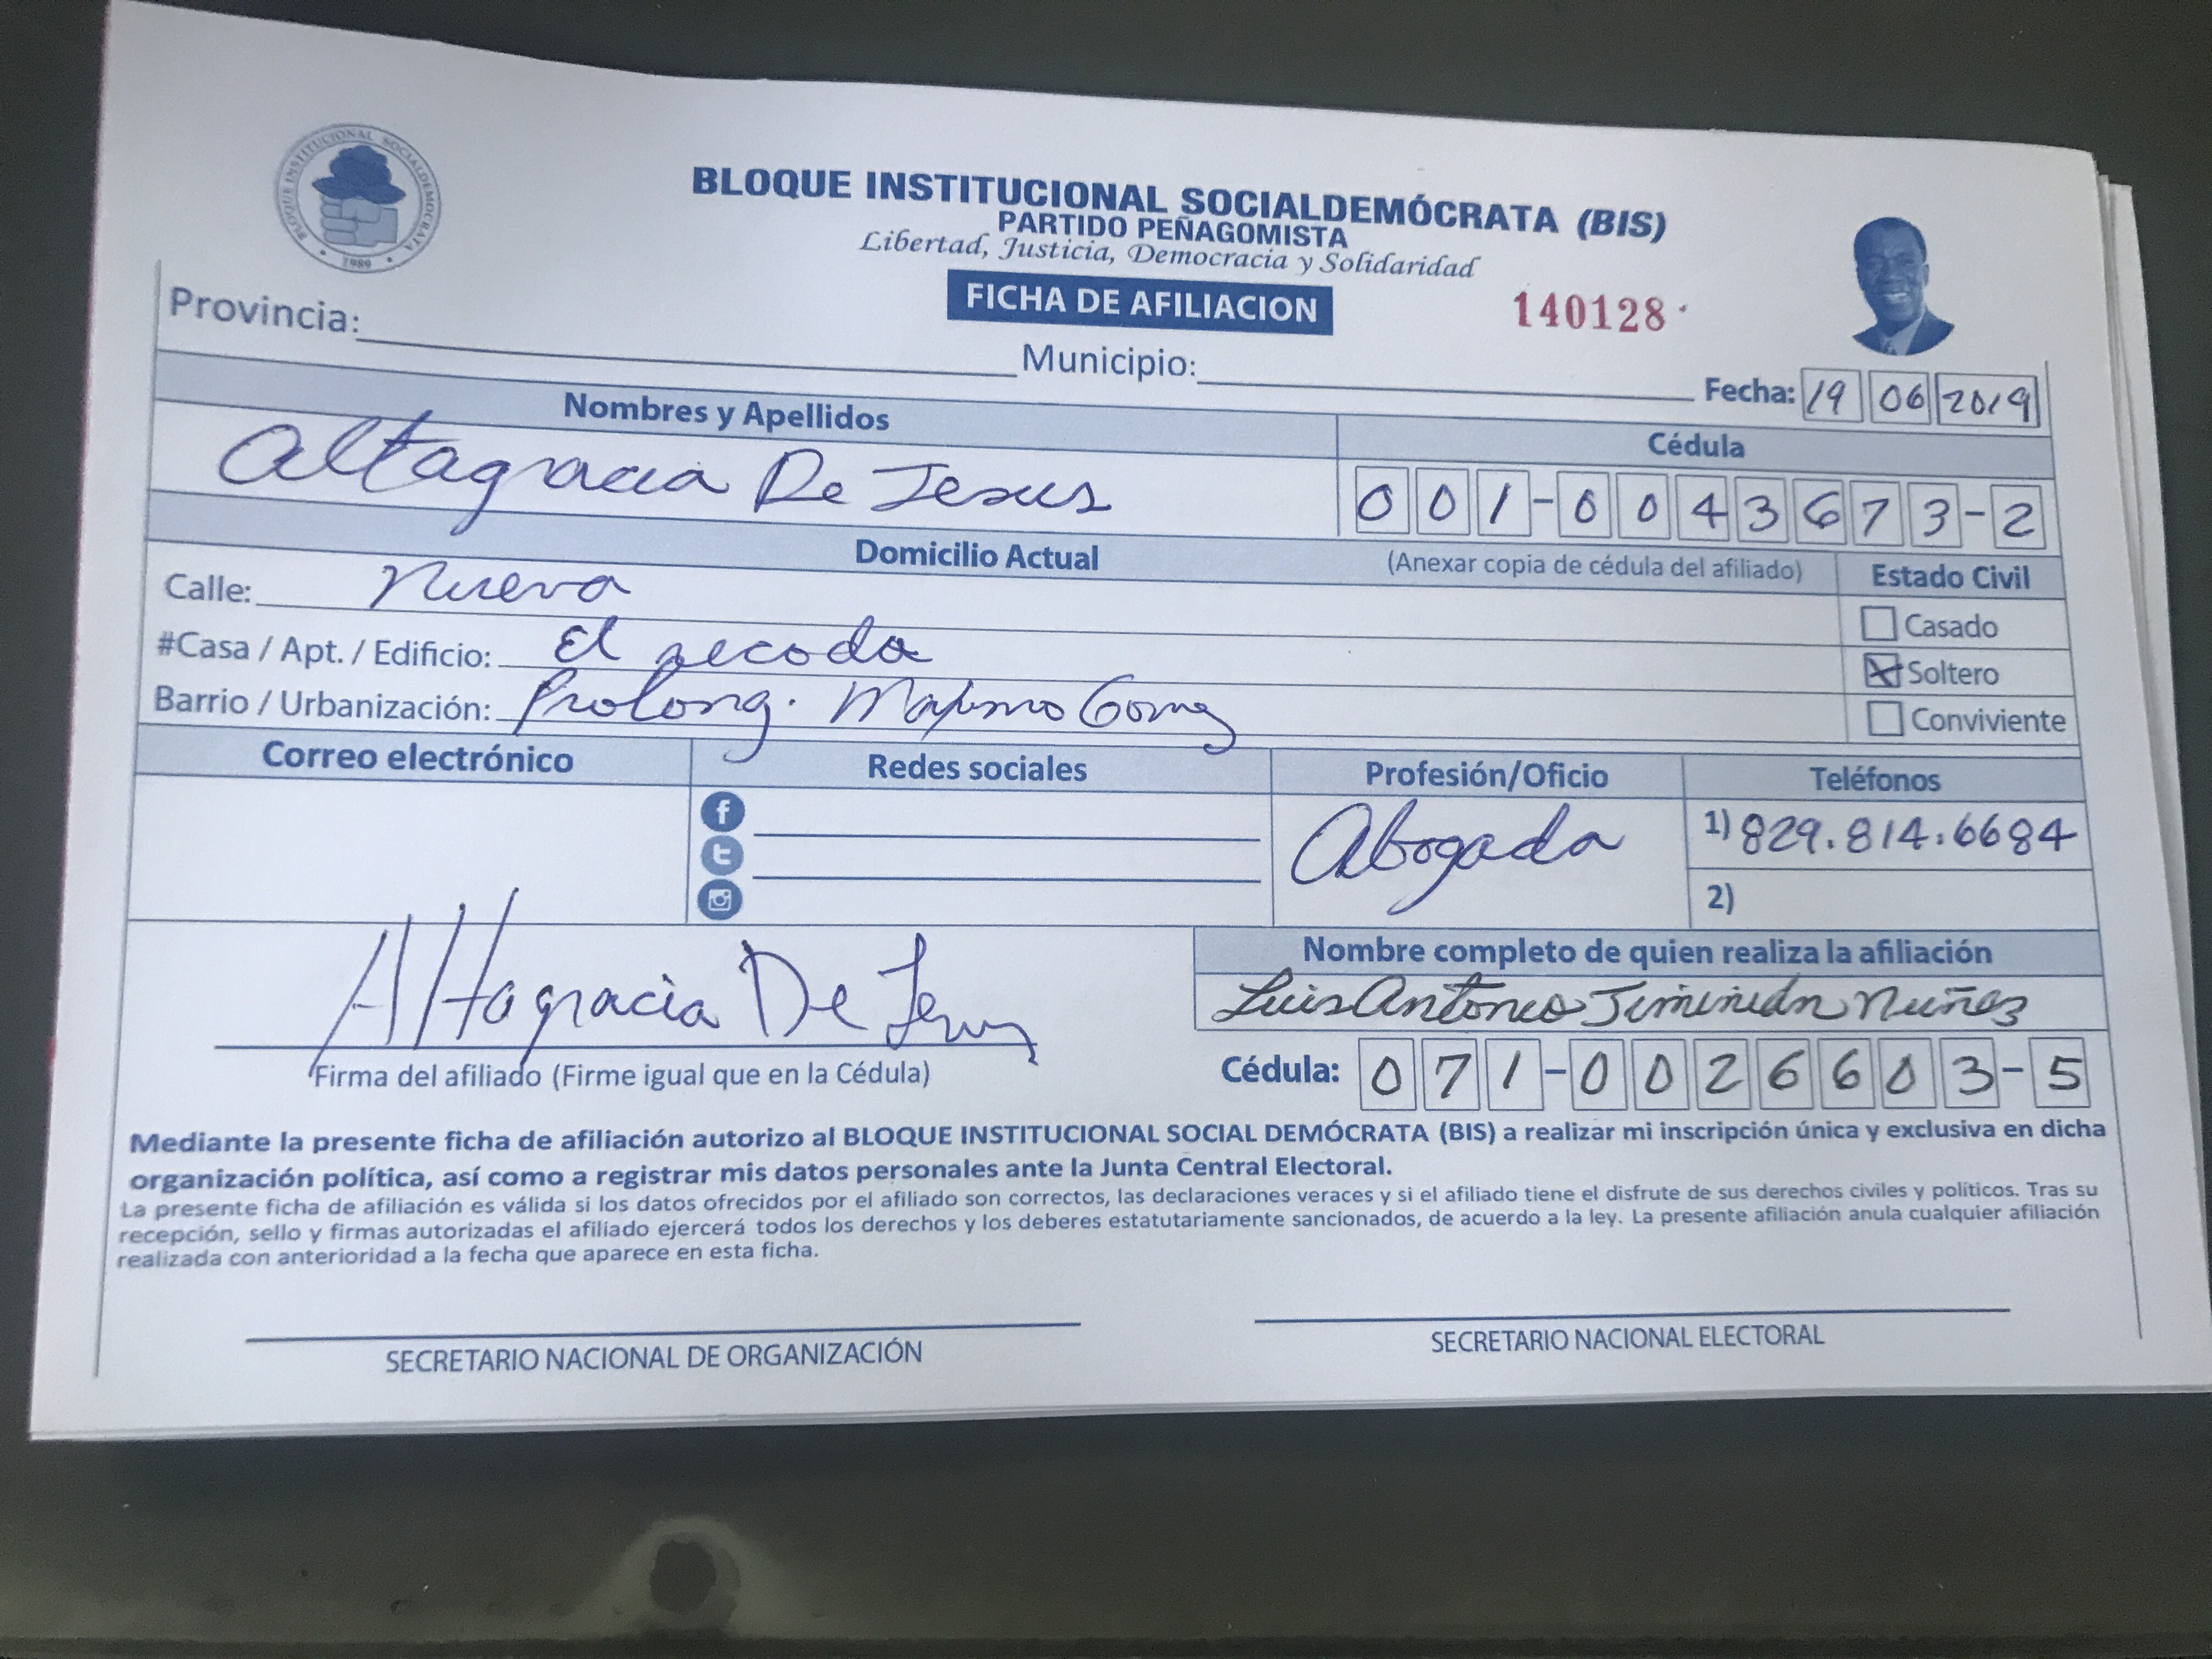 BLOQUE INSTITUCIONAL SOCIALDEMOCRATA
1989
BLOQUE INSTITUCIONAL SOCIALDEMÓCRATA (BIS)
PARTIDO PEÑAGOMISTA
Libertad, Justicia, Democracia y Solidaridad
FICHA DE AFILIACION
140128
Provincia:
Municipio:
Fecha: 19 06 2019
Nombres y Apellidos
Cédula
Altagracia De Jesus
001-0043673-2
Domicilio Actual
(Anexar copia de cédula del afiliado)
Estado Civil
Calle: Nueva
Casado
#Casa / Apt. / Edificio: El recodo
Soltero
Barrio / Urbanización: Prolong. Maximo Gomez
Conviviente
Correo electrónico
Redes sociales
Profesión/Oficio
Teléfonos
Abogada
1) 829.814.6684
2)
Altagracia De Jesus
Nombre completo de quien realiza la afiliación
Luis Antonio Núñez
Firma del afiliado (Firme igual que en la Cédula)
Cédula: 071-0026603-5
Mediante la presente ficha de afiliación autorizo al BLOQUE INSTITUCIONAL SOCIAL DEMÓCRATA (BIS) a realizar mi inscripción única y exclusiva en dicha
organización política, así como a registrar mis datos personales ante la Junta Central Electoral.
La presente ficha de afiliación es válida si los datos ofrecidos por el afiliado son correctos, las declaraciones veraces y si el afiliado tiene el disfrute de sus derechos civiles y políticos. Tras su
recepción, sello y firmas autorizadas el afiliado ejercerá todos los derechos y los deberes estatutariamente sancionados, de acuerdo a la ley. La presente afiliación anula cualquier afiliación
realizada con anterioridad a la fecha que aparece en esta ficha.
SECRETARIO NACIONAL DE ORGANIZACIÓN
SECRETARIO NACIONAL ELECTORAL